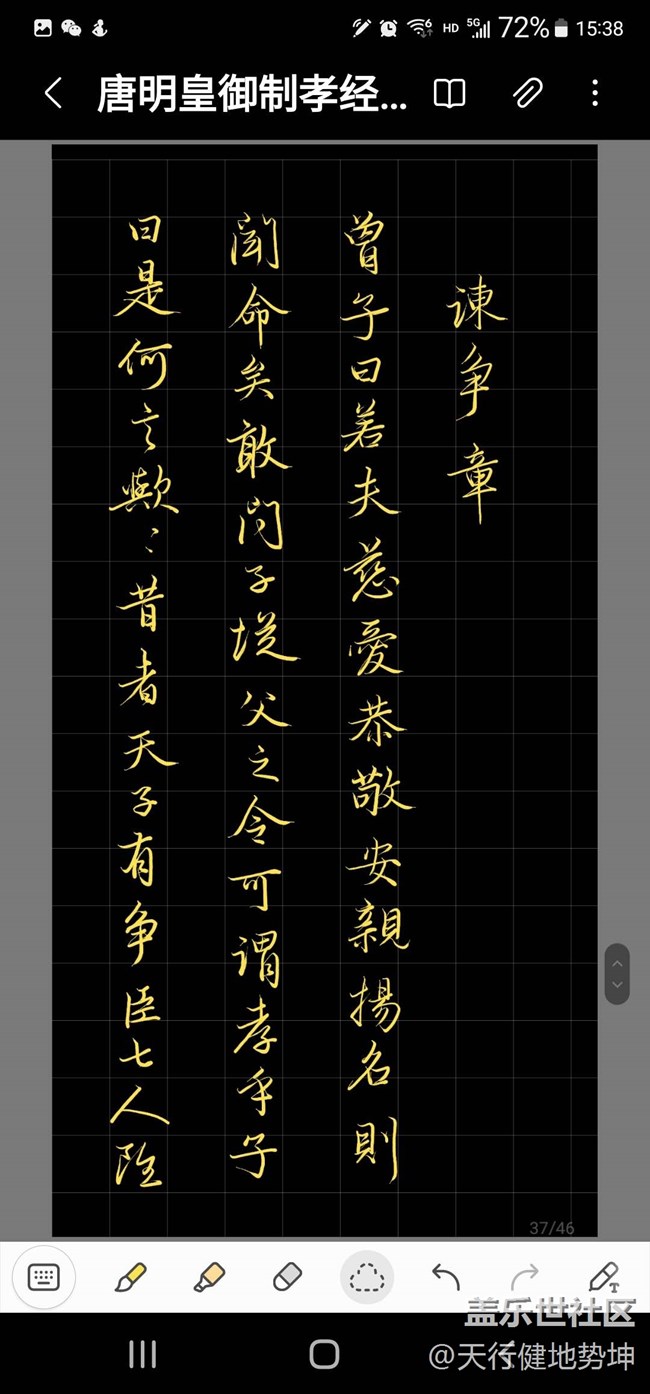 72% 15:38
唐明皇御制孝经...
諫争章
曾子曰若夫慈愛恭敬安親揚名則
聞命矣敢問子從父之令可謂孝乎子
曰是何言歟〻昔者天子有争臣七人雖
37/46
盖乐世社区
@天行健地势坤